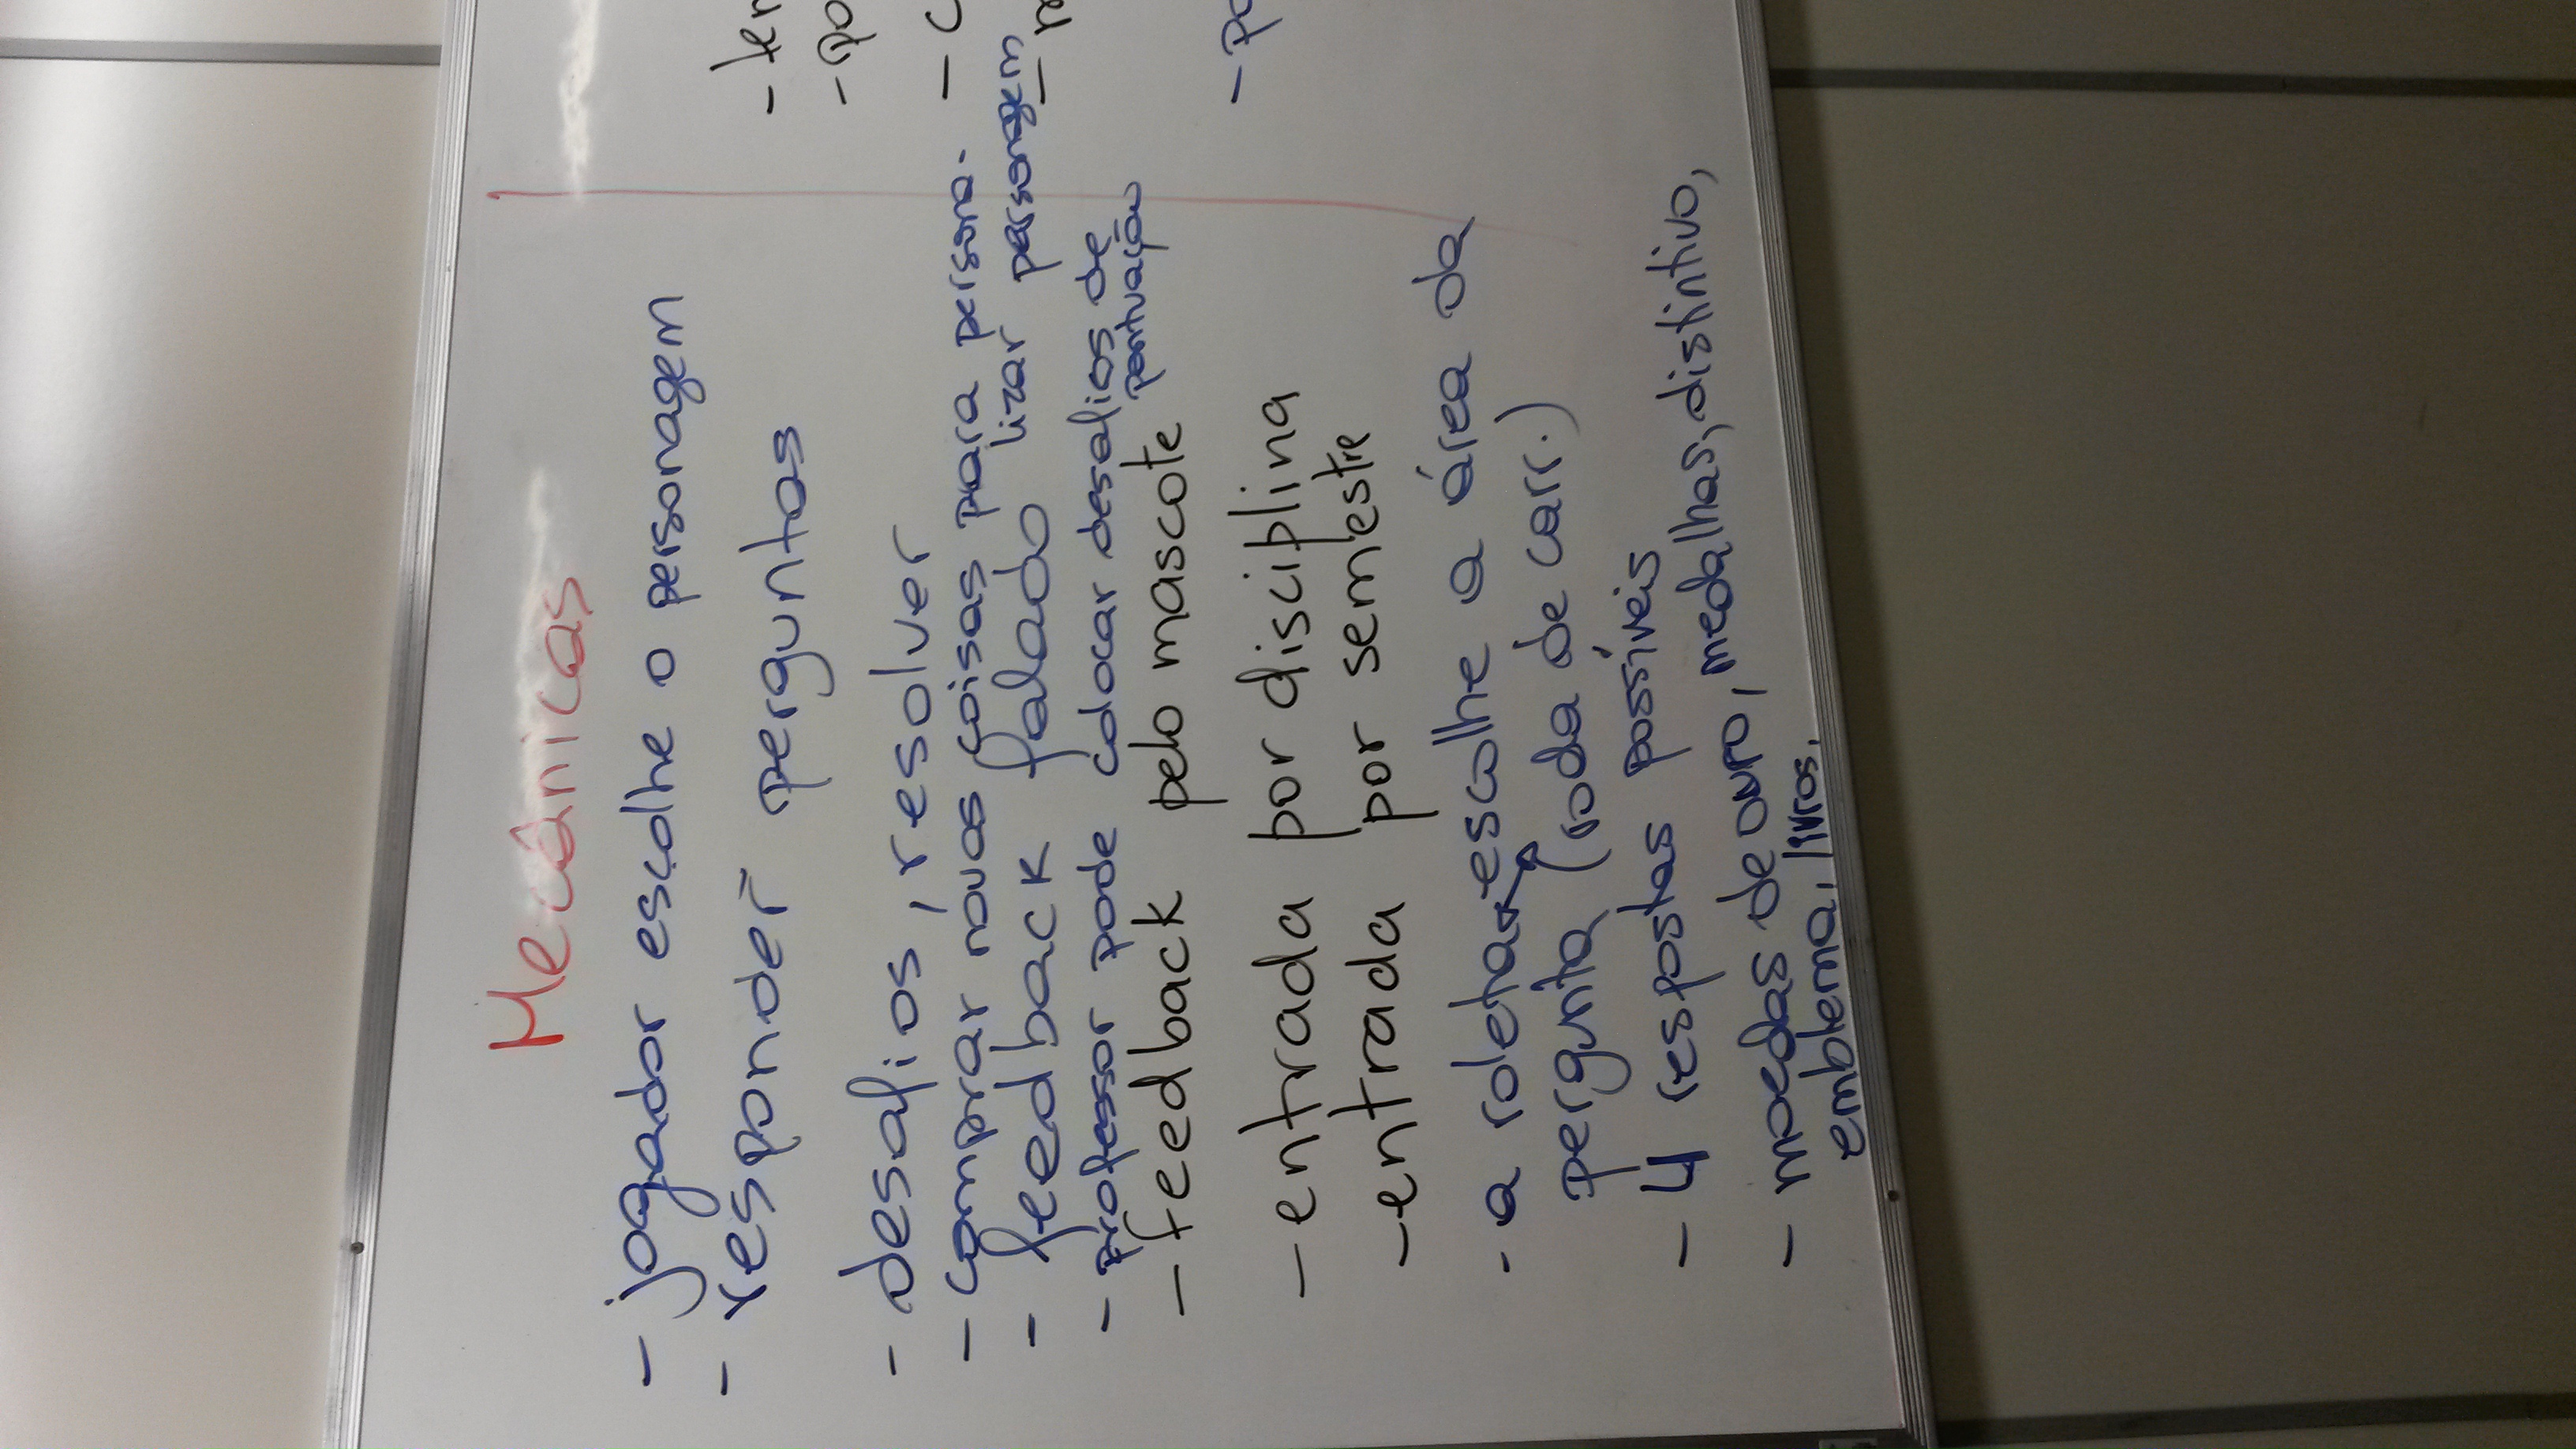 Mecânicas
- jogador escolhe o personagem
- responder perguntas
- desafios, resolver
- comprar novas coisas para persona-
lizar personagem
- feedback falado
- professor pode colocar desafios de
pontuação
- feedback pelo mascote
- entrada por disciplina
- entrada por semestre
- a roleta escolhe a área da
pergunta (roda de carr.)
- 4 respostas possíveis
- moedas de ouro, medalhas, distintivo,
emblema, livros.